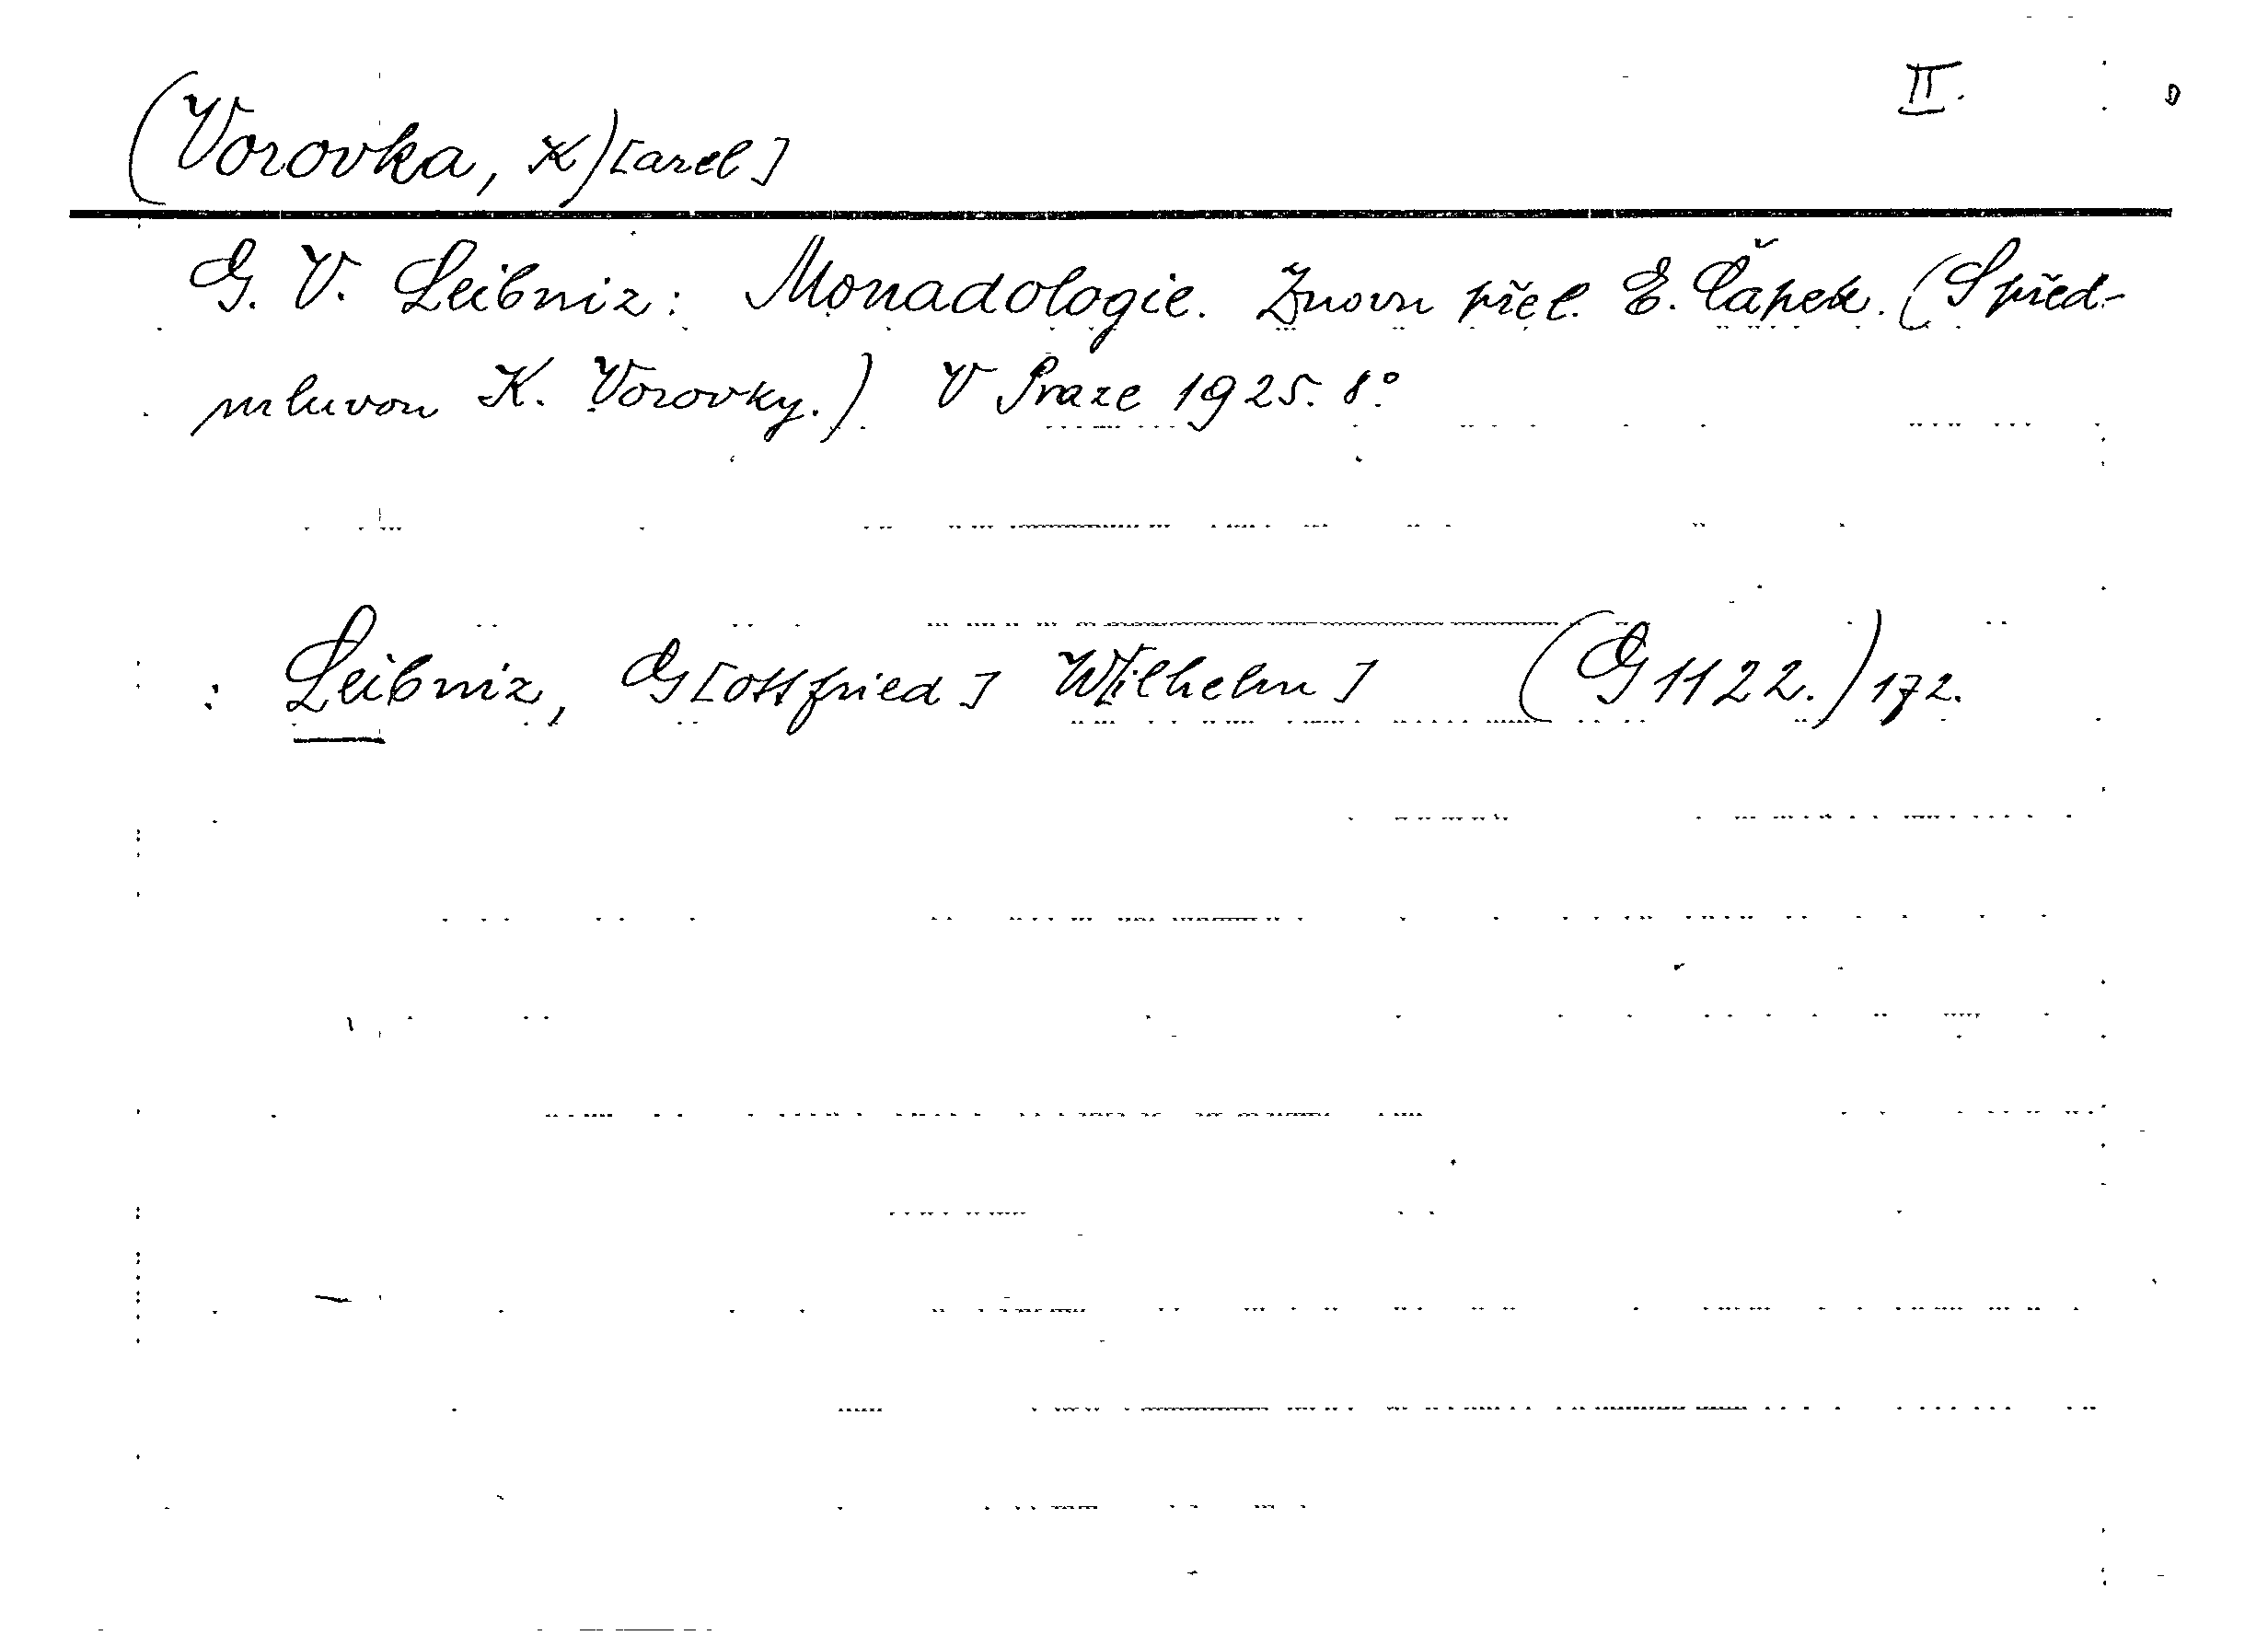 II.
(Vorovka, K)[arel]
G. V. Leibniz: Monadologie. Znovu přel. E. Čapek. (S před-
mluvou K. Vorovky.) V Praze 1925. 8°.
: Leibniz, G[ottfried] W[ilhelm] (G 1122.) 172.